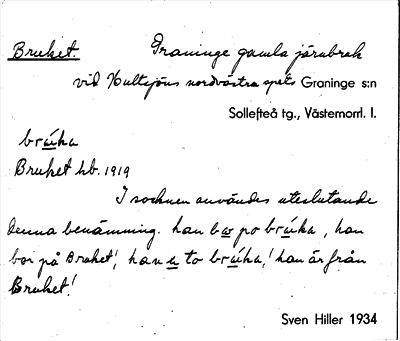 Bruket. Graninge gamla järnbruk
vid Hultsjöns nordvästra spets Graninge s:n
Sollefteå tg., Västernorrl. l.
brúka
Bruket hb. 1919
I socknen användes uteslutande
denna benämning. han bor po brúka, han
bor på Bruket!, han a to brúka,! han är från
Bruket!
Sven Hiller 1934